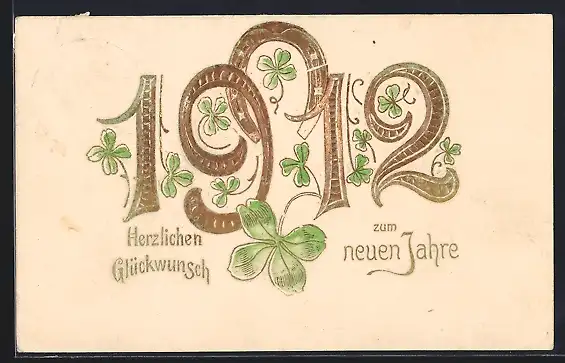 1912
Herzlichen
Glückwunsch
zum
neuen Jahre